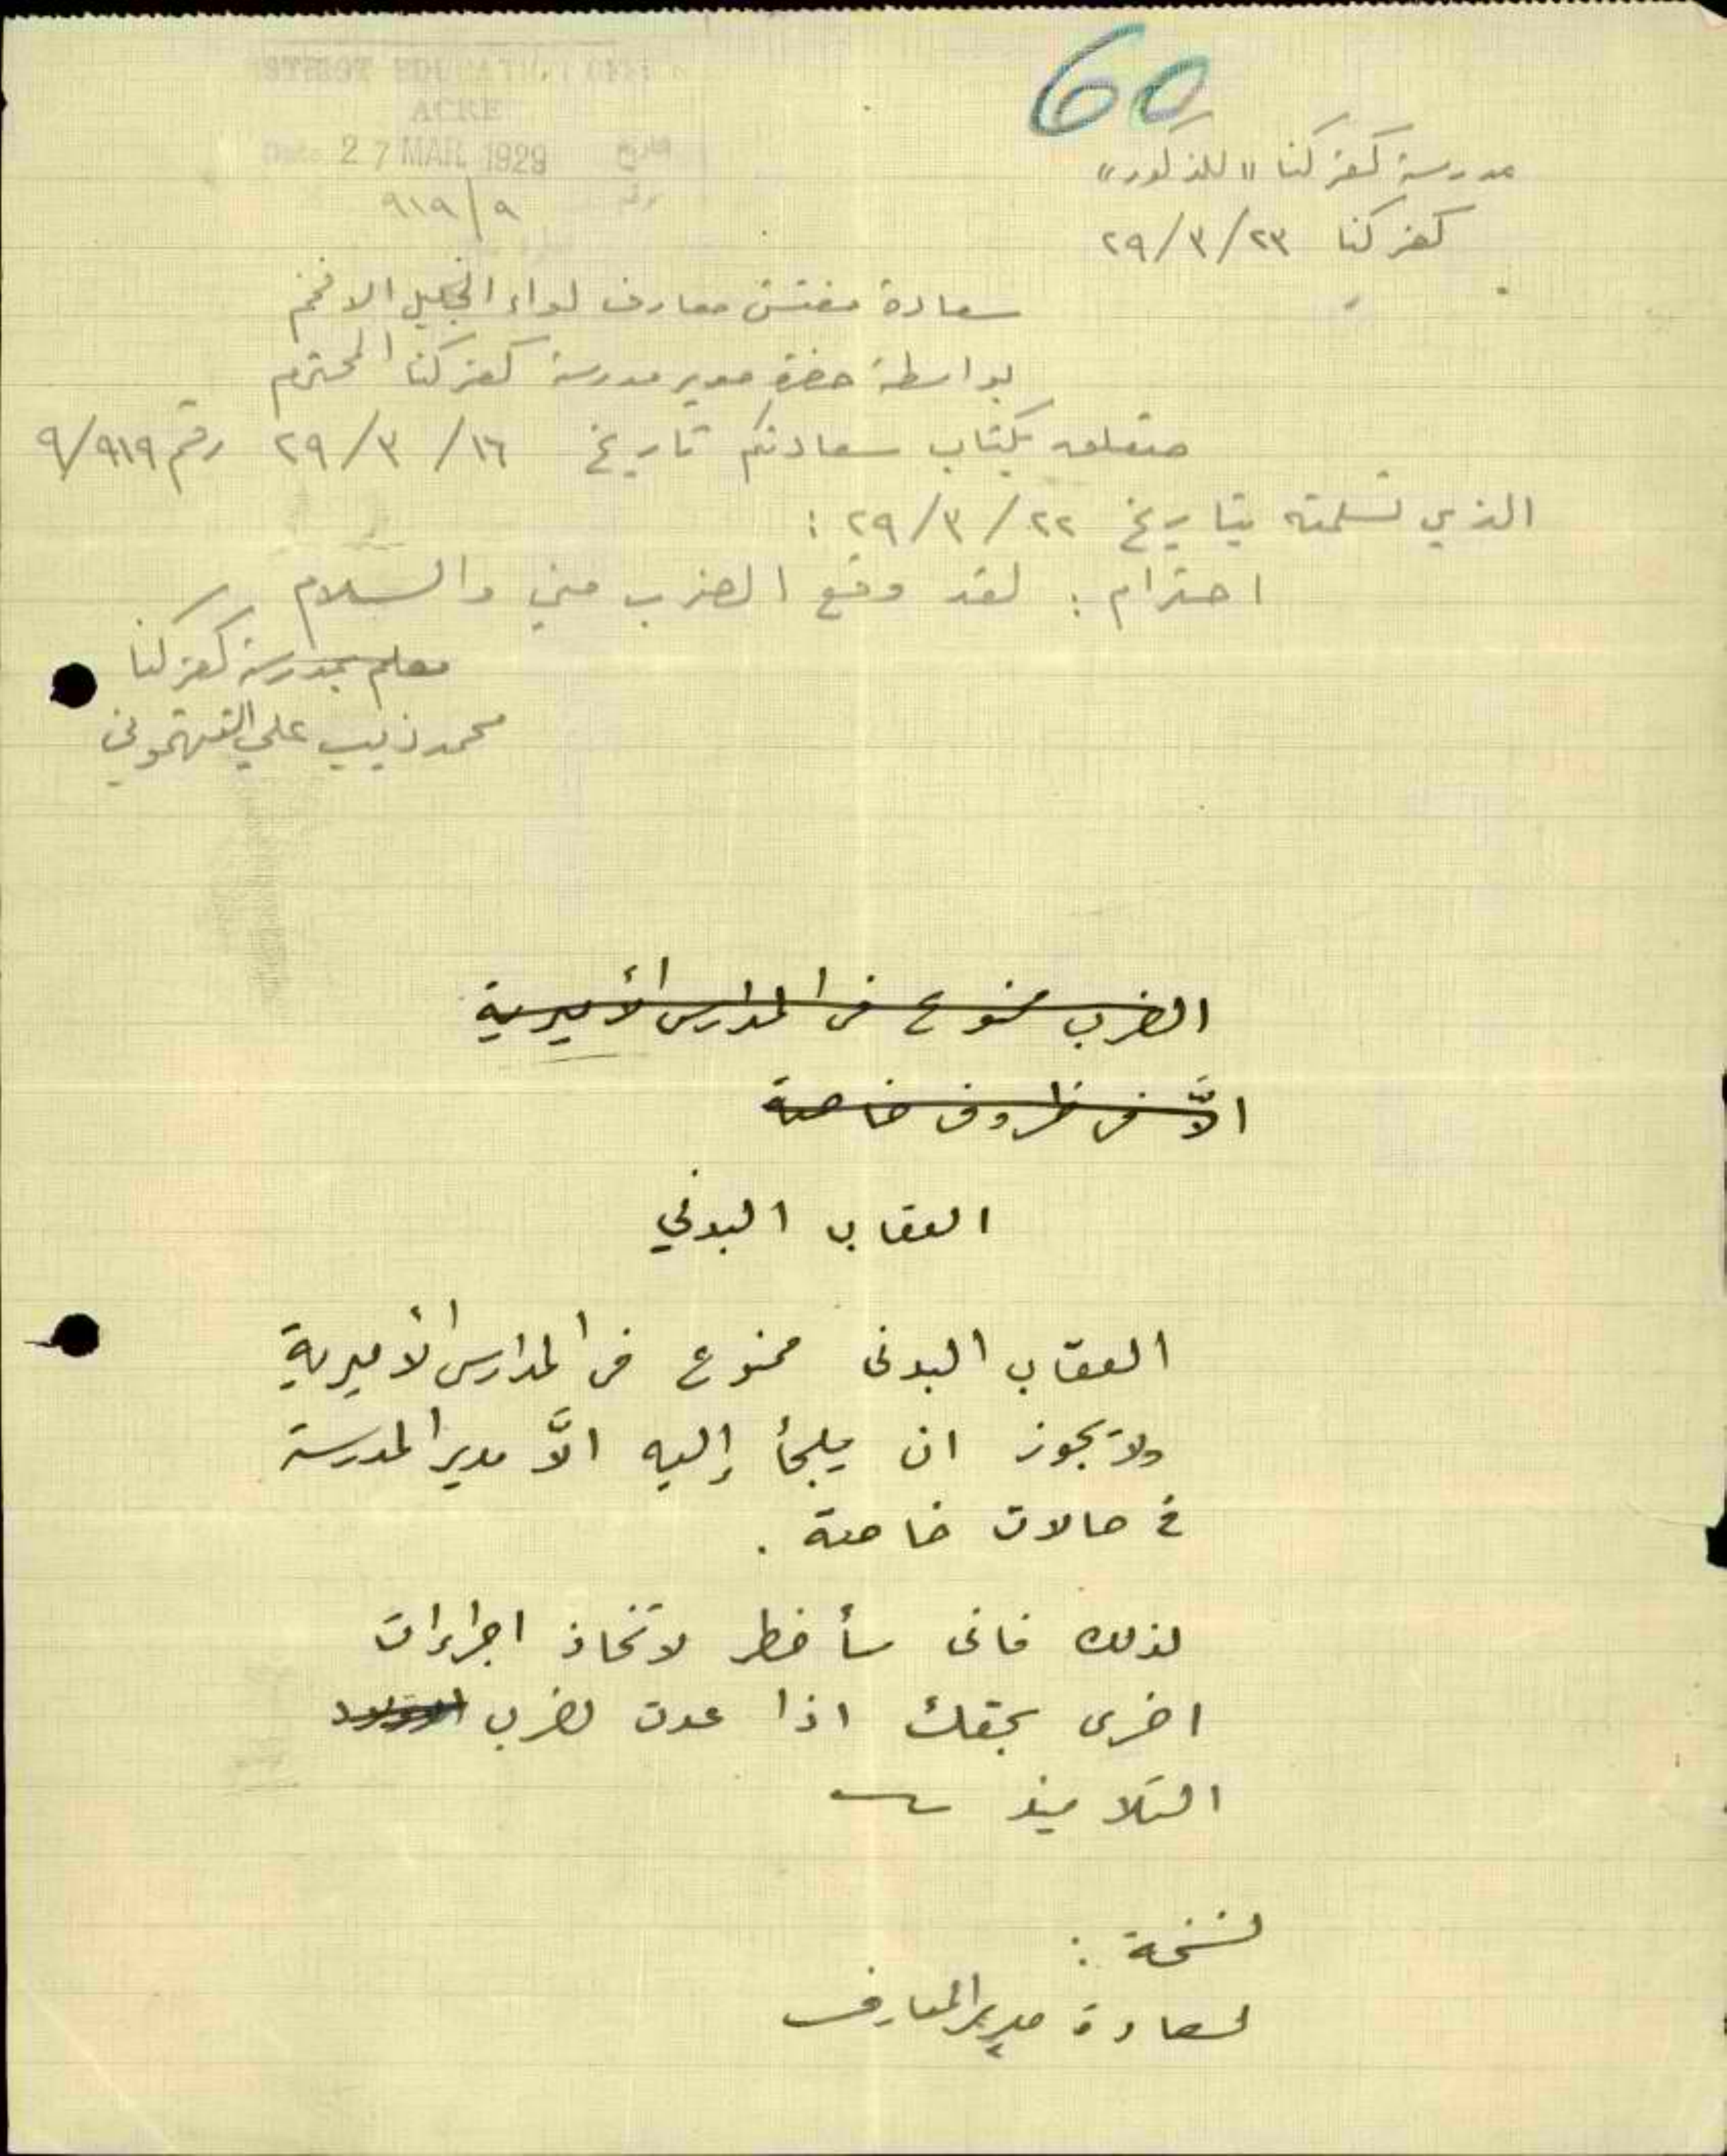 60
STRICT EDUCATION OFFI
ACRE
Date 27 MAR 1929 تاريخ
رقم ٩١٩/٩
مدرسة كفركنا "للذكور"
كفركنا ٢٩/٣/٢٣
سعادة مفتش معارف لواء الجليل الافخم
بواسطة حضرة مدير مدرسة كفركنا المحترم
متعلق بكتاب سعادتكم تاريخ ٢٩/٣/١٦ رقم ٩/٩١٩
الذي تسلمته بتاريخ ٢٩/٣/٢٢ :
احترام : لقد وقع الضرب مني والسلام
معلم بمدرسة كفركنا
محمد ذيب علي
الضرب ممنوع في المدارس الأميرية
الاَّ في ظروف خاصة
العقاب البدني
العقاب البدنى ممنوع فى المدارس الأميرية
ولا يجوز ان يلجأ إليه الاَّ مدير المدرسة
في حالات خاصة .
لذلك فانى سأضطر لاتخاذ اجراءات
اخرى بحقك اذا عدت لضرب
التلاميذ
نسخة :
لسعادة مدير المعارف